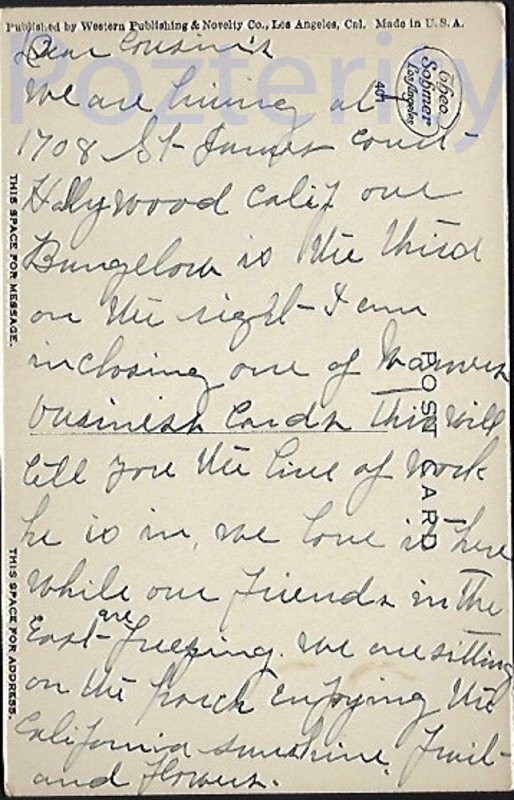 Published by Western Publishing & Novelty Co., Los Angeles, Cal. Made in U. S. A.
Pozterity
Dear Cousin's
Theo. Sohmer
Los Angeles
401
We are living at
1708 St James Court
Hollywood Calif our
Bungelow is the third
on the right I am
inclosing one of
business cards this will
tell you the line of work
he is in, we love it here
While our friends in the
East are freezing. We are sitting
on the porch enjoying the
California sunshine. Fruit
and flowers.
THIS SPACE FOR MESSAGE.
POST CARD
THIS SPACE FOR ADDRESS.